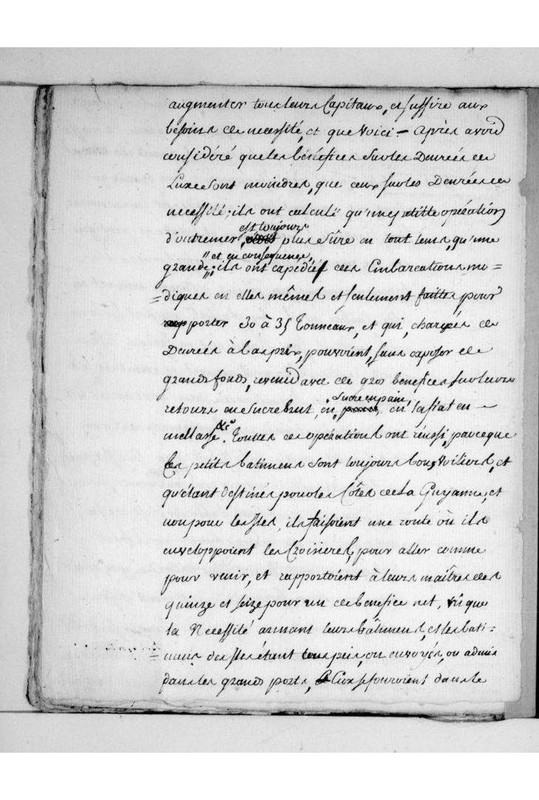 augmenter tous leurs Capitaux, et suffire aux
besoins de necessité, et que voici — après avoir
considéré que les bénéfices sur les Denrées de
Luxe sont moindres, que ceux sur les Denrées de
necessité; ils ont calculé qu'une petitte opération
est toujours
d'outremer, plus sûre en tout tems, qu'une
"et en consequence,
grande; ils ont expedié des Embarcations mo=
=diques en elles mêmes et seulement faittes, pour
porter 30 à 35 Tonneaux, et qui, chargées de
Denrées à bas prix, pouvoient, sans exposer de
grands fonds, revenir avec de gros benefices sur leurs
sucre en pain,
retours en sucre brut, en en tafiat en —
&c.a
mellasse. Toutes ces opérations ont réussi, parceque
les petits batimens sont toujours bons voiliers, et
qu'étant destinés pour les Côtes de la Guyanne, et
non pour les Isles, ils faisoient une route où ils
enveloppoient les Croisieres, pour aller comme
pour venir, et rapportoient à leurs maîtres des
quinze et seize pour un de benefice net, vû que
la Necessité armant leurs bâtimens, et les bati=
=mens des Isles étant tous pris, ou envoyés, ou admis
dans les grands ports, le Luxe se fournoient dans le